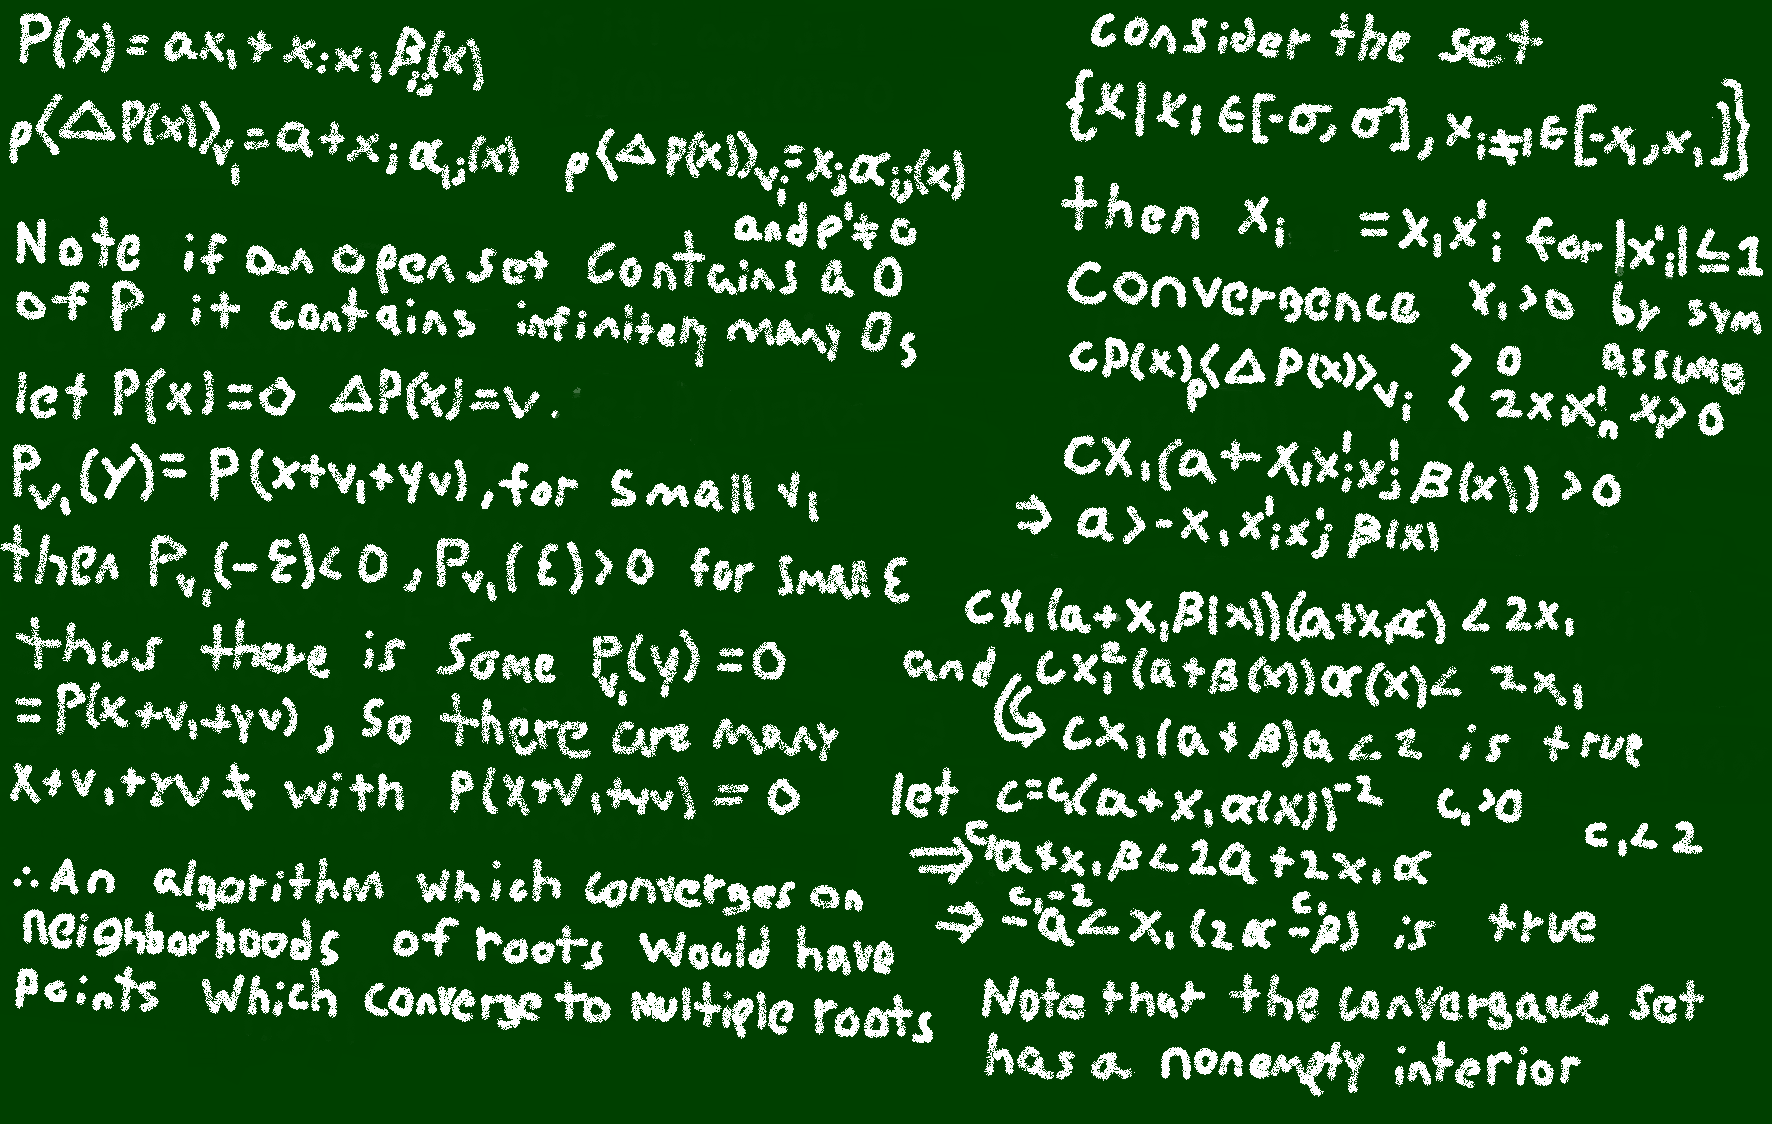 P(x)=ax₁+xᵢxⱼβᵢⱼ(x)
ρ⟨ΔP(x)⟩ᵥᵢ=a+xⱼα₁ⱼ(x) ρ⟨ΔP(x)⟩ᵥᵢ=xⱼαᵢⱼ(x)
and ρ'≠0
Note if an open set contains a 0
of P, it contains infiniten many 0s
let P(x)=0 ΔP(x)=v.
Pᵥ₁(y)=P(x+v₁+yv), for small v₁
then Pᵥ₁(-ε)<0, Pᵥ₁(ε)>0 for small ε
thus there is some Pᵥ₁(y)=0
=P(x+v₁+yv), so there are many
x+v₁+yv ≠ with P(x+v₁+yv)=0
∴ An algorithm which converges on
neighborhoods of roots would have
points which converge to multiple roots
consider the set
{x|x₁∈[-σ,σ], xᵢ≠₁∈[-x₁,x₁]}
then xᵢ =x₁x'ᵢ for |x'ᵢ|≤1
Convergence x₁>0 by sym
cP(x)ρ⟨ΔP(x)⟩ᵥᵢ >0 assume
<2x₁x'ₙ x₁>0
cx₁(a+x₁x'ᵢx'ⱼβ(x))>0
⇒ a>-x₁x'ᵢx'ⱼβ(x)
cx₁(a+x₁β(x))(a+x₁α)<2x₁
and cx₁²(a+β(x))α(x)<2x₁
cx₁(a+β)a<2 is true
let c=c₁(a+x₁α(x))⁻² c₁>0 c₁<2
⇒ c₁a+x₁β<2a+2x₁α
⇒ c₁-2
-a<x₁(2α-c₁β) is true
Note that the convergance set
has a nonempty interior